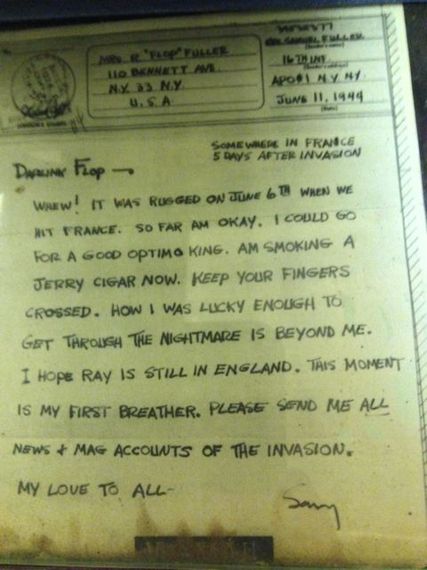 MRS R "FLOP" FULLER
110 BENNETT AVE.
N.Y. 33 N.Y.
U.S.A
SAMUEL FULLER
16TH INF
APO#1 N.Y. NY
JUNE 11, 1944
SOMEWHERE IN FRANCE
5 DAYS AFTER INVASION
DARLINK FLOP —
WHEW! IT WAS RUGGED ON JUNE 6TH WHEN WE
HIT FRANCE. SO FAR AM OKAY. I COULD GO
FOR A GOOD OPTIMO KING. AM SMOKING A
JERRY CIGAR NOW. KEEP YOUR FINGERS
CROSSED. HOW I WAS LUCKY ENOUGH TO
GET THROUGH THE NIGHTMARE IS BEYOND ME.
I HOPE RAY IS STILL IN ENGLAND. THIS MOMENT
IS MY FIRST BREATHER. PLEASE SEND ME ALL
NEWS + MAG ACCOUNTS OF THE INVASION.
MY LOVE TO ALL-
Samy